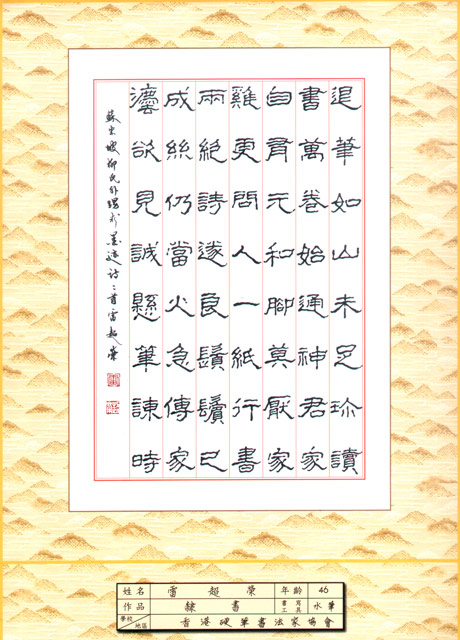 退筆如山未足珍讀
書萬卷始通神君家
自有元和腳莫厭家
雞更問人一紙行書
兩絕詩遂良鬚鬢已
成絲仍當火急傳家
灋欲見誠懸筆諫時
蘇東坡柳氏外甥求墨迹詩二首雷超榮
姓名 雷超榮 年齡 46
作品 隸書 書寫工具 水筆
學校/地區 香港硬筆書法家協會